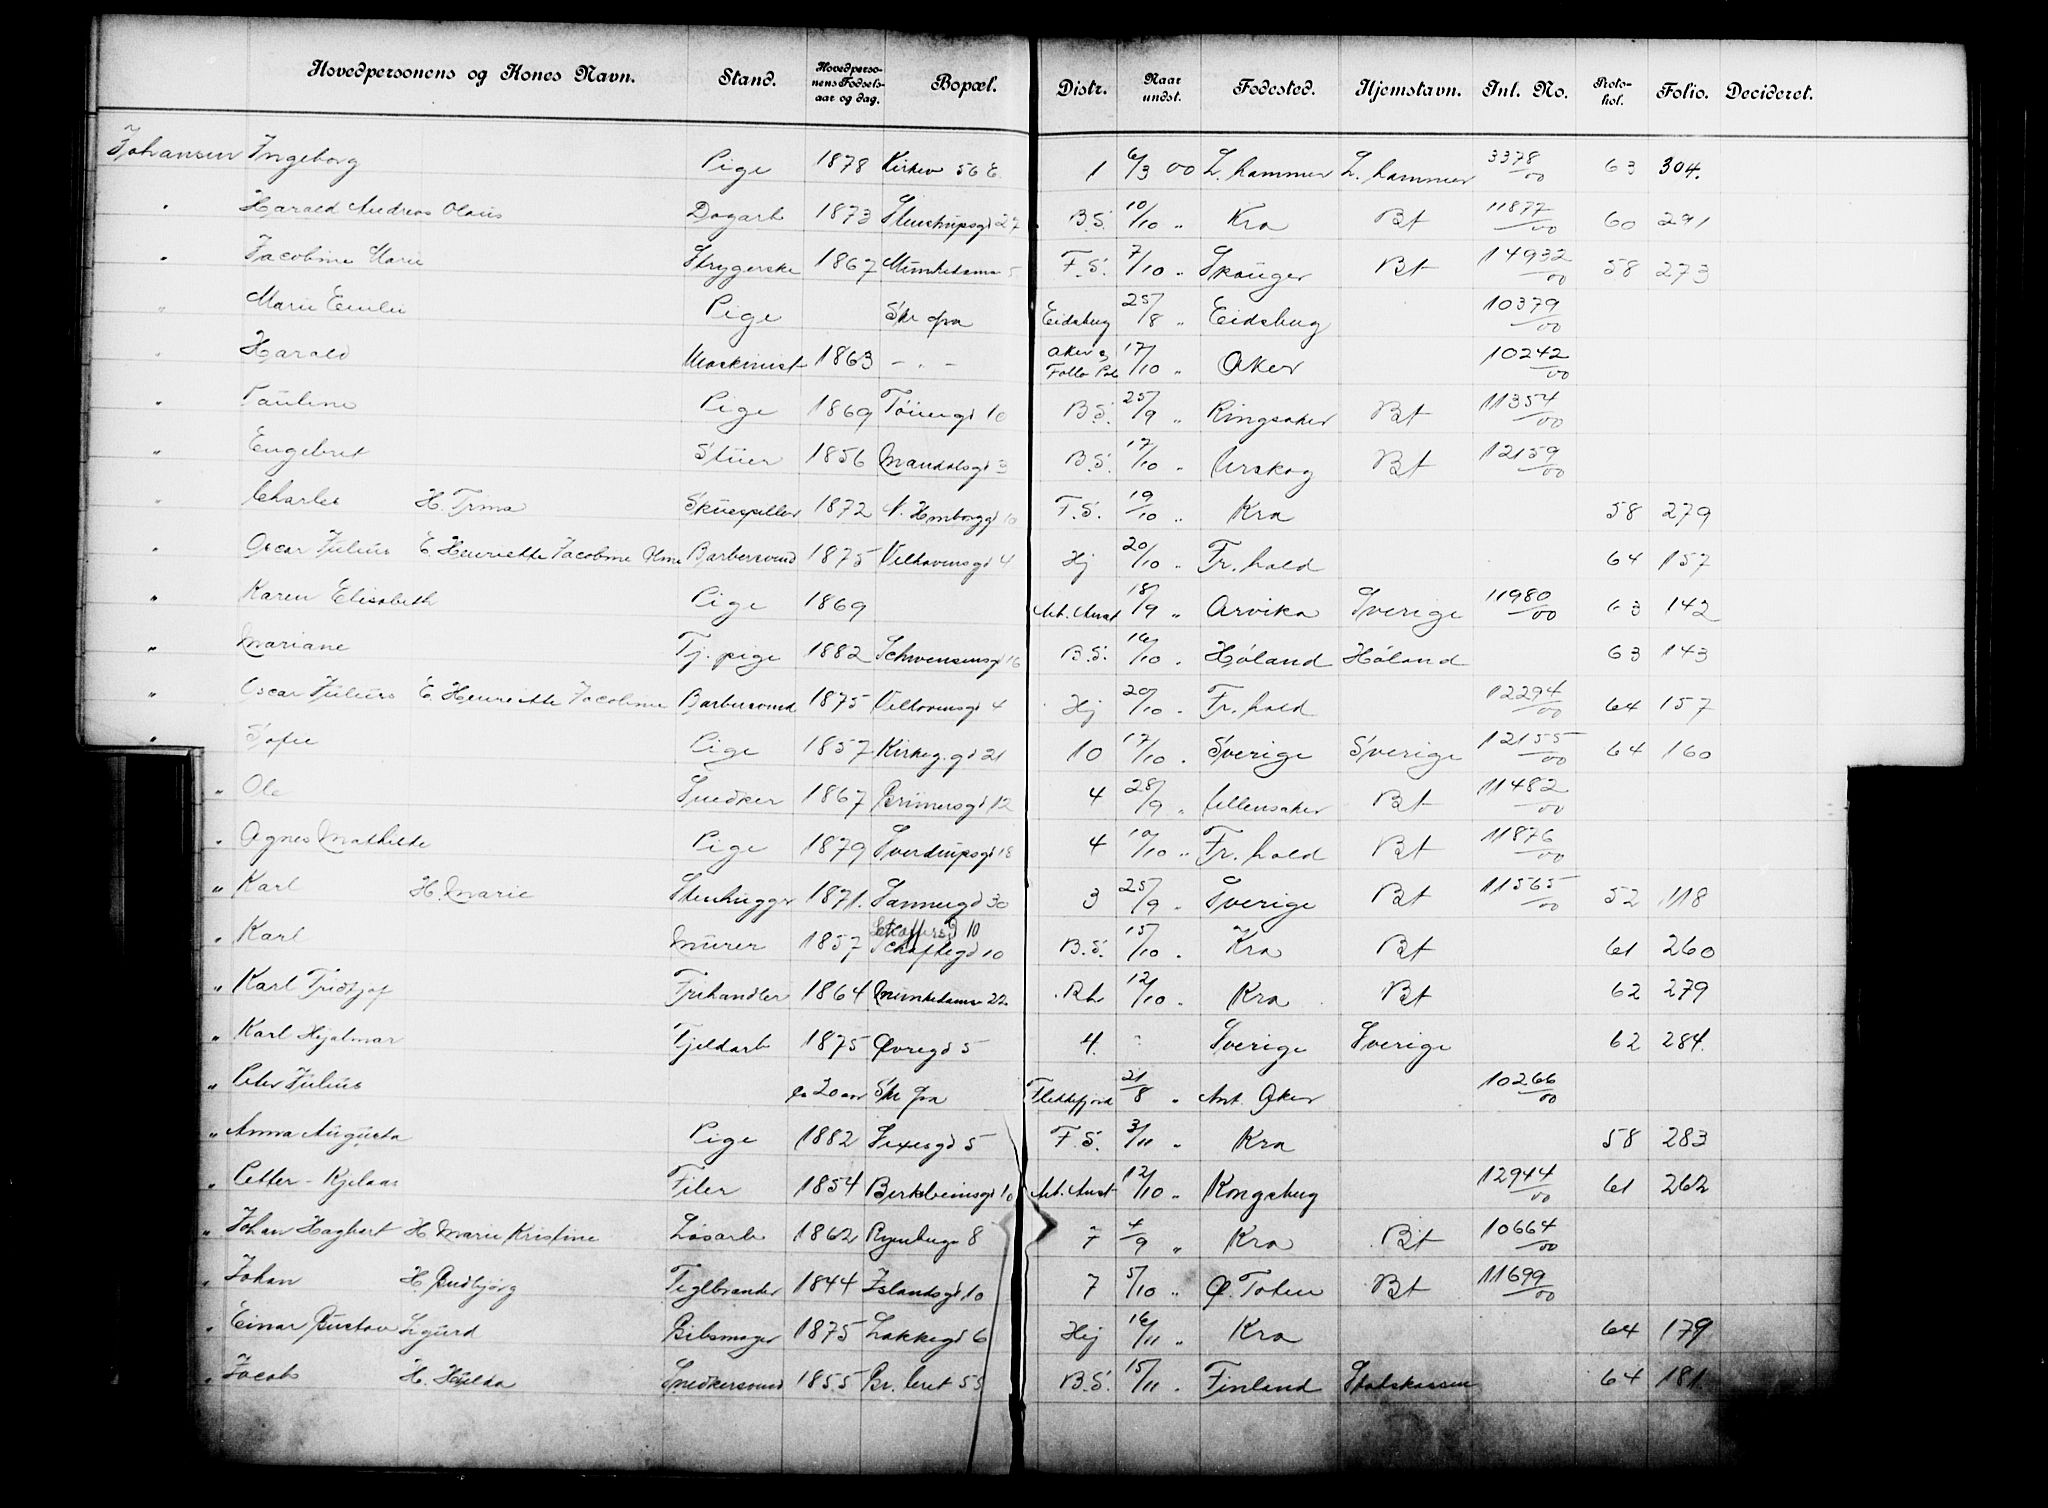 Hovedpersonens og Kones Navn. Stand. Hovedpersonens Fødselsaar og dag. Bopæl. Distr. Naar undst. Fødested. Hjemstavn. Int. No. Protokol. Folio. Decideret.
Johansen Ingeborg Pige 1878 Kirkev 56 E 1 6/3 00 L. hammer L. hammer 3378/00 63 304.
" Harald Andreas Olaus Dagarb 1873 Stenstrupsgd 27 B.S. 10/10 " Kra Bt 11877/00 60 291
" Jacobine Marie Strygerske 1867 Munkedamsv 5 F.S. 7/10 " Skouger Bt 14932/00 58 273
" Marie Emilie Pige Skr fra Eidsbug 25/8 " Eidsbug 10379/00
" Harald Maskinist 1863 - " - Aker og Follo Pol 17/10 " Aker 10242/00
" Pauline Pige 1869 Töiengd 10 B.S. 25/9 " Ringsaker Bt 11354/00
" Engebret Stüer 1856 Mandalsgd 3 B.S. 17/10 " Urskog Bt 12159/00
" Charles H. Trina Sküespiller 1872 V. Hmborggd 10 F.S. 19/10 " Kra 58 279
" Oscar Julius E. Henriette Jacobine Oline Barbersvend 1875 Velhavensgd 4 Hj 20/10 " Fr. hald 64 157
" Karen Elisabeth Pige 1869 Arb. Anst 18/9 " Arvika Sverige 11980/00 63 142
" Mariane Tj. pige 1882 Schwensensgd 16 B.S. 16/10 " Høland Høland 63 143
" Oscar Julius E. Henriette Jacobine Barbersvend 1875 Velhavensgd 4 Hj 20/10 " Fr. hald 12294/00 64 157
" Sofie Pige 1857 Kirkeg.gd 21 10 17/10 " Sverige Sverige 12155/00 64 160
" Ole Snedker 1867 Grünersgd 12 4 28/9 " Ullensaker Bt 11482/00
" Agnes Mathilde Pige 1879 Sverdrupsgd 18 4 10/10 " Fr. hald Bt 11876/00
" Karl H. Marie Stenhugger 1871. Sannergd 30 3 25/9 " Sverige Bt 11565/00 52 118
" Karl Mürer 1857 Schaftegd 10 B.S. 15/10 " Kra Bt 61 260
" Karl Fridtjof Frihandler 1864 Munkedamsv 22 Bh 12/10 " Kra Bt 62 279
" Karl Hjalmar Fjeldarb 1875 Øvregd 5 4. " Sverige Sverige 62 284.
" Peter Julius ca 20 aar Skr fra Flekkefjord 21/8 " Ant. Aker 10266/00
" Anna Augusta Pige 1882 Sexesgd 5 F.S. 3/11 " Kra 58 283
" Petter - Kjelaas Filer 1854 Birkebeinsgd 10 Arb. Anst 12/10 " Kongsbug 12944/00 61 262
" Johan Hagbert H Marie Kristine Løsarb 1862 Ryenbugs 8 7 4/9 " Kra Bt 10664/00
" Johan H. Gudbjörg Teglbrænder 1844 Islandsgd 10 7 5/10 " Ø. Toten Bt 11699/00
" Einar Gustav Sigurd Gibsmager 1875 Lakkegd 6 Hj 16/11 " Kra 64 179
" Jacob H. Hulda Snedkersvend 1855 Gr. leret 55 B.S. 15/11 " Finland Statskassen 64 181.